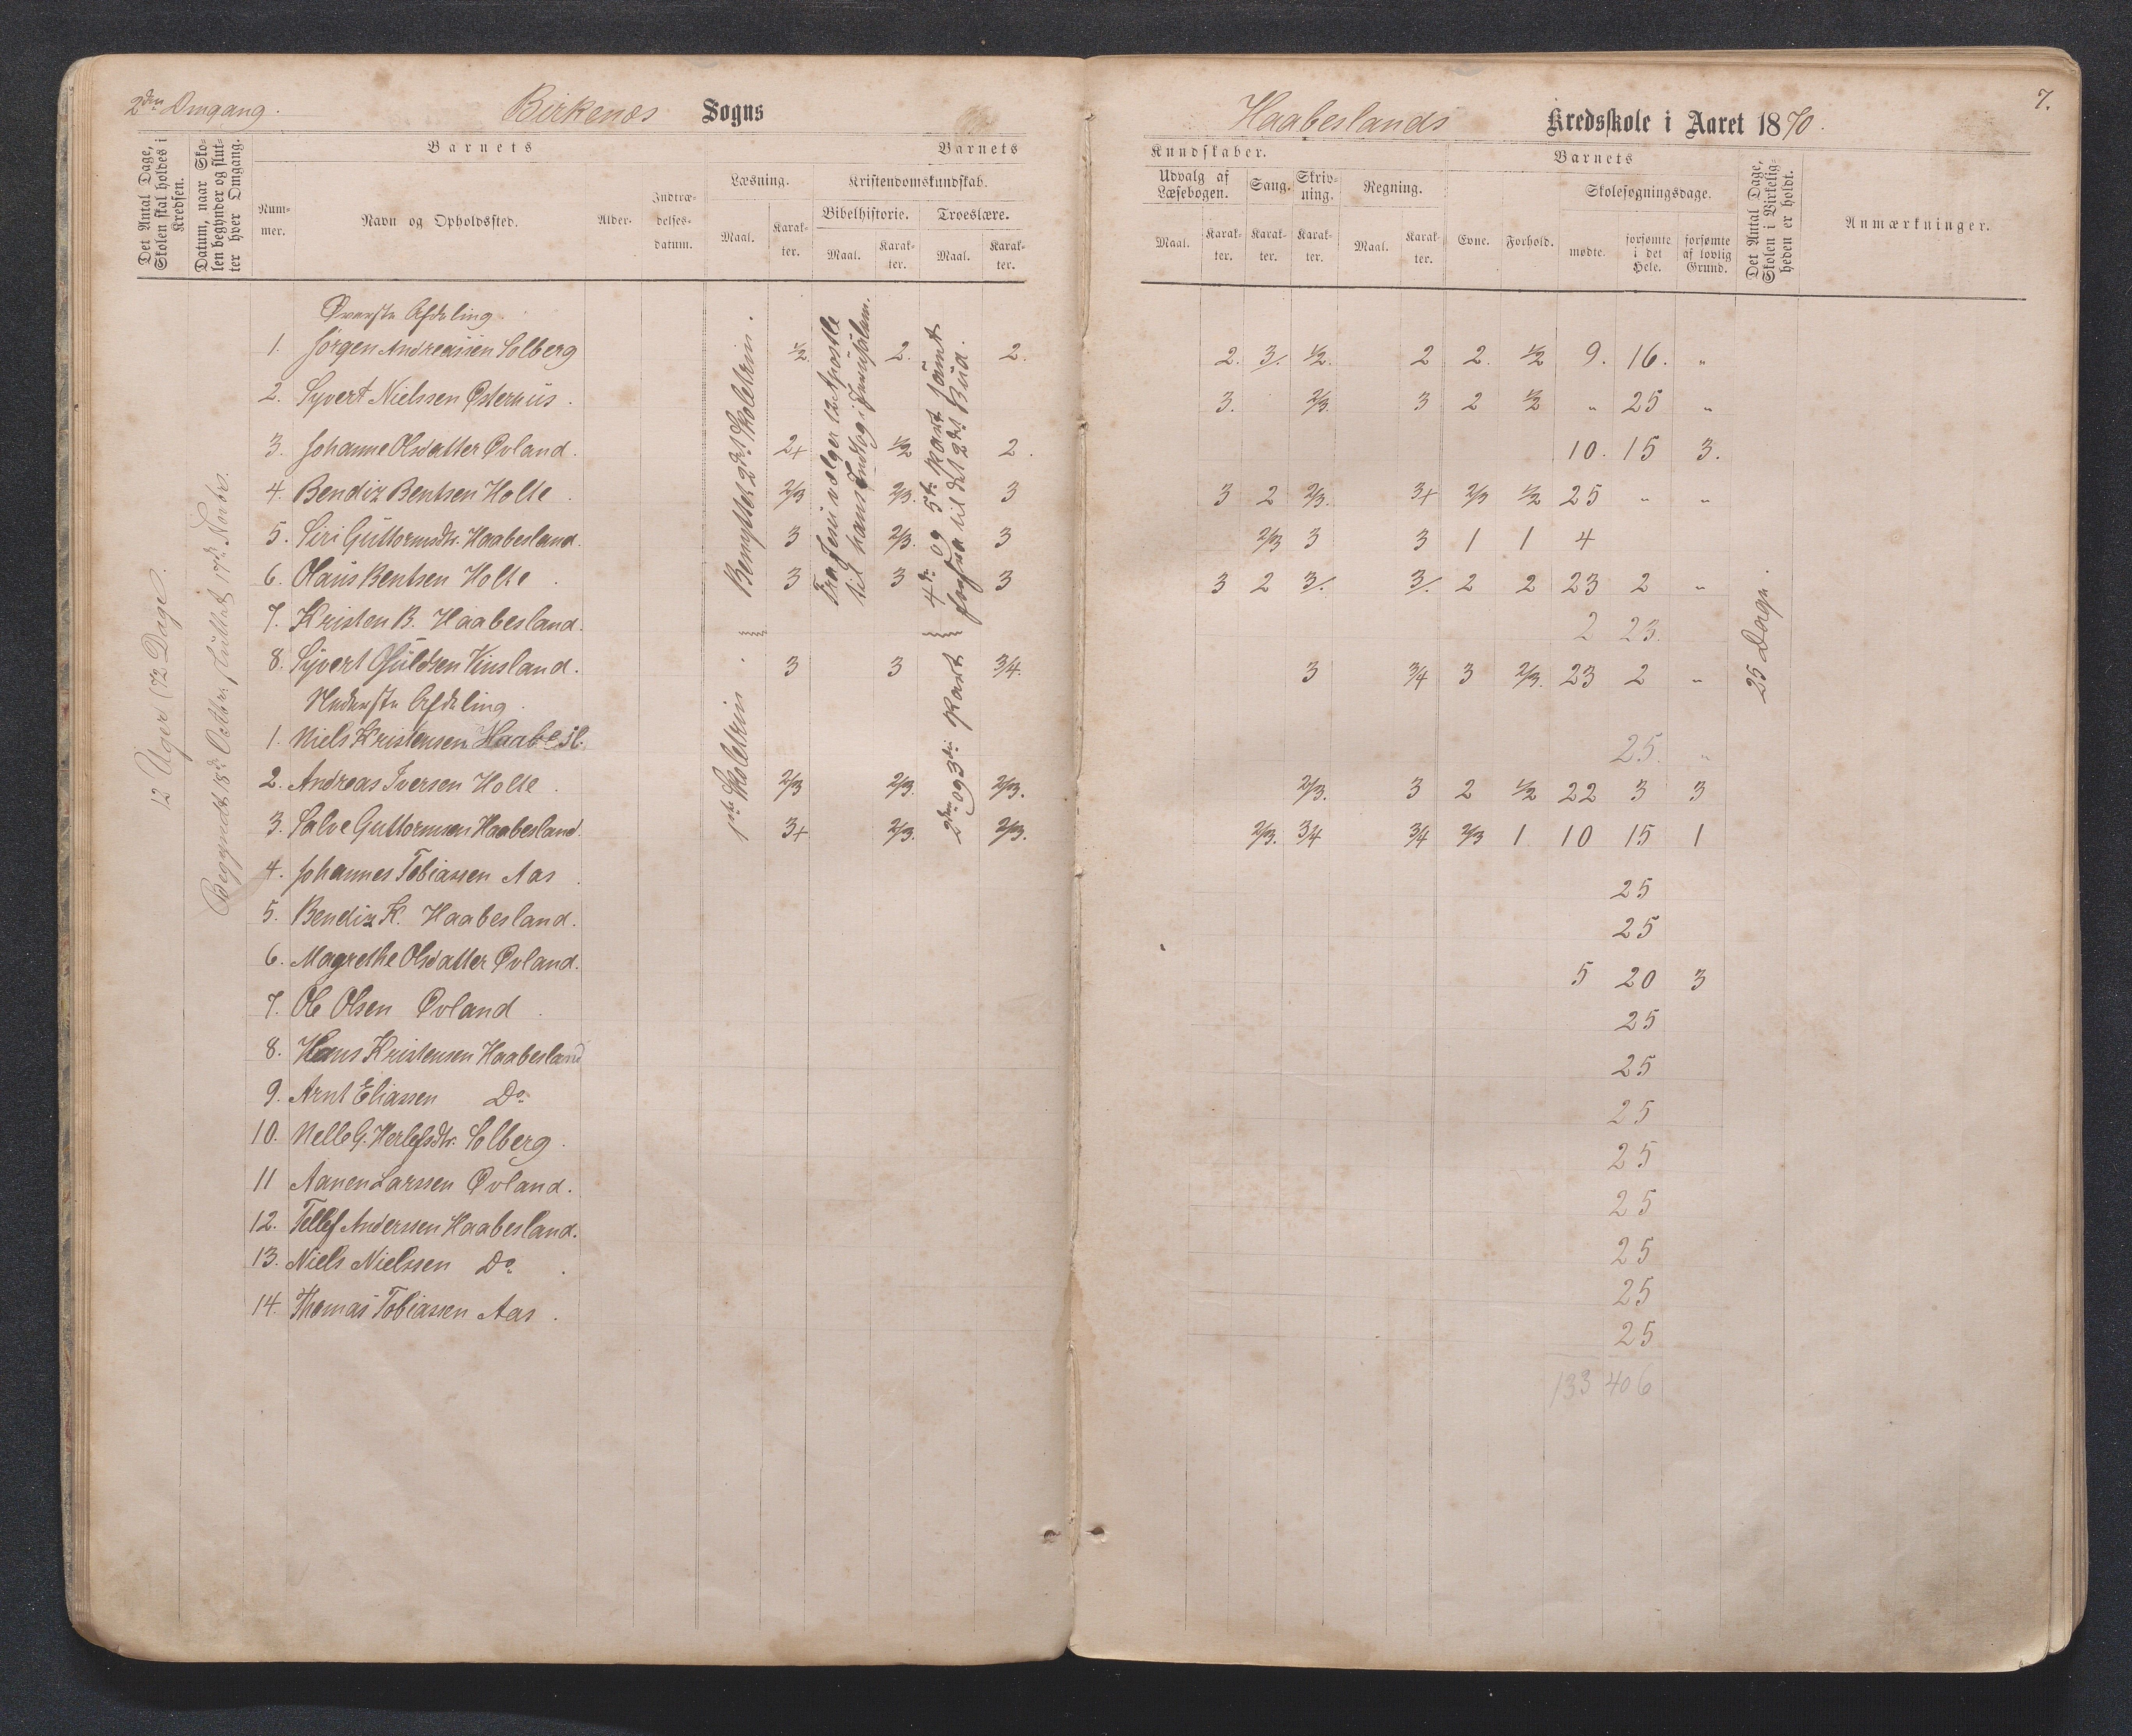 2den Omgang.
Birkenæs Sogns
Haabeslands Kredsskole i Aaret 1870.
7.
Det Antal Dage, Skolen skal holdes i Kredsen.
Datum, naar Skolen begynder og slutter hver Omgang.
Barnets
Barnets
Nummer.
Navn og Opholdssted.
Alder.
Indtrædelsesdatum.
Læsning.
Kristendomskundskab.
Bibelhistorie.
Troeslære.
Maal.
Karakter.
Maal.
Karakter.
Maal.
Karakter.
Kundskaber.
Barnets
Udvalg af Læsebogen.
Sang.
Skrivning.
Regning.
Skolesøgningsdage.
Maal.
Karakter.
Karakter.
Karakter.
Maal.
Karakter.
Evne.
Forhold.
mødte.
forsømte i det Hele.
forsømte af lovlig Grund.
Det Antal Dage, Skolen i Virkeligheden er holdt.
Anmærkninger.
12 Uger (72 Dage).
Begyndt 18de Octbr. sluttet 17de Novbr.
Benyttet 2det Skoletrin.
Fra Jesu vælger 12 Apostle til hans Indtog i Jerusalem.
4de og 5te Part samt til det 2det Bud.
25 Dage.
Øverste Afdeling.
1. Jørgen Andreassen Solberg 1/2 2. 2. 2. 3/. 1/2. 2 2. 1/2 9. 16. "
2. Syvert Nielssen Østerhus. 3. 2/3. 3 2 1/2 " 25 "
3. Johanne Olsdatter Øvland. 2+ 1/2 2. 10. 15 3.
4. Bendix Bentsen Holte. 2/3 2/3. 3 3 2 2/3. 3+ 2/3 1/2 25 " "
5. Siri Guttormsdtr. Haabesland. 3 2/3. 3 2/3 3 3 1 1 4
6. Olaus Bentsen Holte. 3 3 3 3 2 3/. 3/. 2 2 23 2 "
7. Kristen B. Haabesland. 2 23.
8. Syvert Gfuldsen Vinsland. 3 3 3/4. 3 3/4 3 2/3. 23 2 "
Nederste Afdeling.
1ste Skoletrin.
2den og 3die Part
1. Niels Kristensen Haabesl. 25. "
2. Andreas Iversen Holte. 2/3 2/3. 2/3. 2/3. 3 2 1/2 22 3 3
3. Salve Guttormsen Haabesland. 3+ 2/3. 2/3. 2/3. 3/4 3/4 2/3 1 10 15 1
4. Johannes Tobiassen Aas. 25
5. Bendix K. Haabesland. 25
6. Magrethe Olsdatter Øvland. 5 20 3
7. Ole Olsen Øvland. 25
8. Hans Kristensen Haabesland 25
9. Arnt Eliassen Do. 25
10. Nelle G. Herlefsdtr. Solberg. 25
11 Aanen Larssen Øvland. 25
12. Tellef Anderssen Haabesland. 25
13. Niels Nielssen Do. 25
14. Thomas Tobiassen Aas. 25
133 406